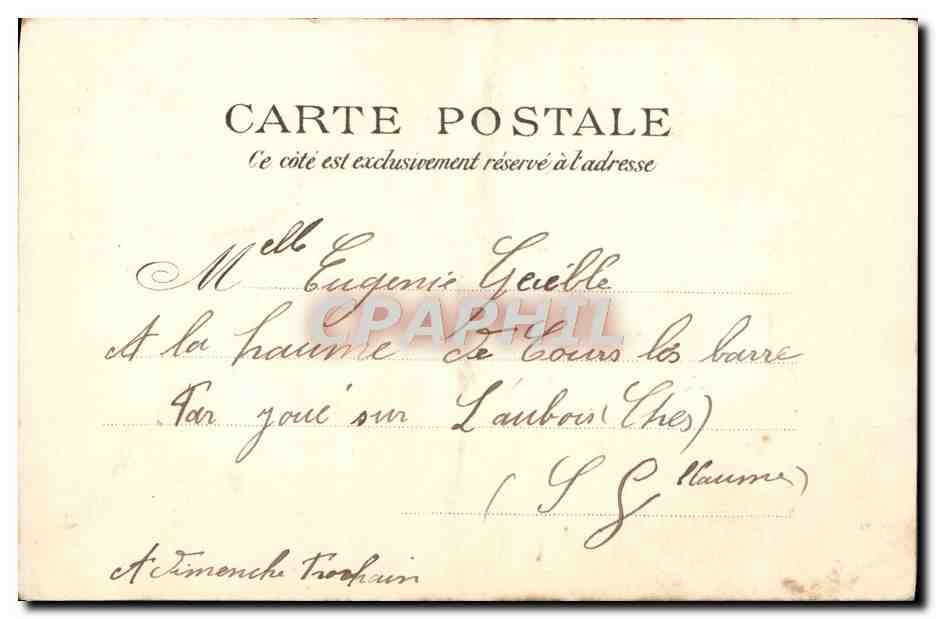 CARTE POSTALE
Ce côté est exclusivement réservé à l'adresse
Melle Eugenie
CPAPHIL
A la haume De Tours les barre
Par joué sur L'aubois (Cher)
(S G llaume)
A Dimenche Prochain